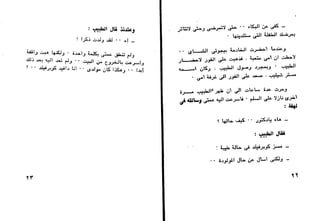 - كفى عن البكاء ٠٠ حتى لاتمرضى وحتى لاتتأثر
بمرضك الطفلة التى ستلدينها ٠
وعندما أحضرت الخادمة بيجوتى الشاى ٠٠
لاحظت أن أمى متعبة ٠ فذهبت على الفور لاحضار
الطبيب ٠ وبمجرد وصول الطبيب ٠ وكان اسمه
مستر شيليب ٠ صعد على الفور الى غرفة أمى ٠
ومرت عدة ساعات الى أن ظهر الطبيب مرة
أخرى نازلا على السلم ٠ فأسرعت اليه عمتى وسألته فى
لهفة :
- هاه يادكتور ٠٠ كيف حالها ؟
فقال الطبيب :
- مسز كوبرفيلد فى حالة طيبة !
- ولكنى أسأل عن حال المولودة ٠٠
٢٢
وعندئذ قال الطبيب :
- آه ٠٠ لقد ولدت ذكرا !
ولم تنطق عمتى بكلمة واحدة ٠ ولكنها هبت واقفة
وأسرعت بالخروج من البيت ٠٠ ولم تعد اليه بعد ذلك
أبدا ٠٠ وهكذا كان مولدى ٠٠ أنا دافيد كوبرفيلد ٠٠ !
٢٣